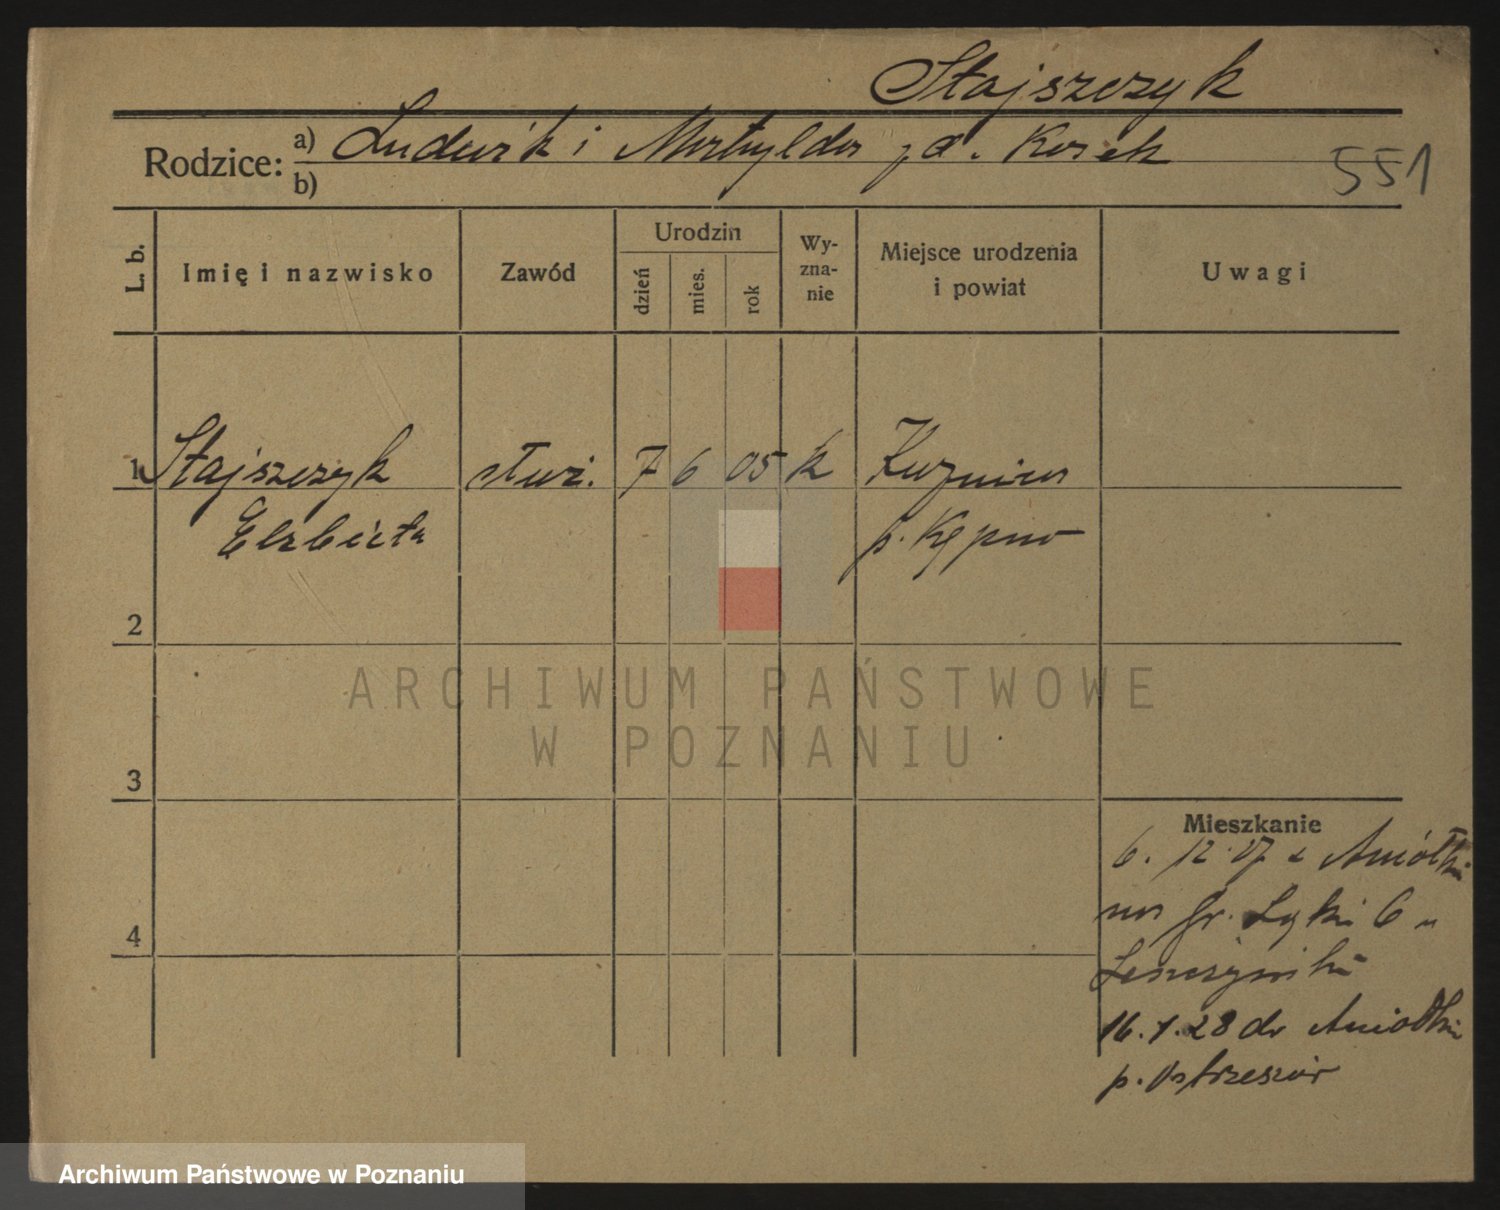 Stajszczyk
Rodzice: a) Ludwik i Matylda zd. Kosek
b)
551
L. b.
Imię i nazwisko
Zawód
Urodzin
dzień
mies.
rok
Wy-
zna-
nie
Miejsce urodzenia
i powiat
Uwagi
1 Stajszczyk służ. 7 6 05 k Kuźnica
Elżbieta p. Kępno
2
3
4
Mieszkanie
6. 12. 27 z Aniołki
na Gr. Łąki 6 u
16. 1. 28 do Aniołki
p. Ostrzeszów
ARCHIWUM PAŃSTWOWE
W POZNANIU
Archiwum Państwowe w Poznaniu